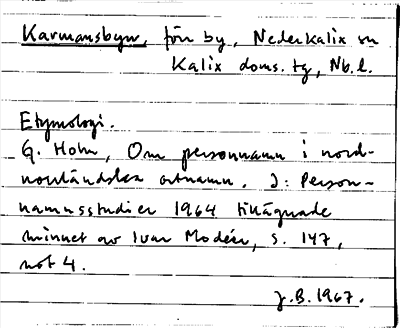 Karmansbyn, förr by, Nederkalix sn
Kalix doms. tg, Nb. l.
Etymologi.
G. Holm, Om personnamn i nord-
norrländska ortnamn. I: Person-
namnsstudier 1964 tillägnade
minnet av Ivar Modéer, s. 147,
not 4.
J.B. 1967.